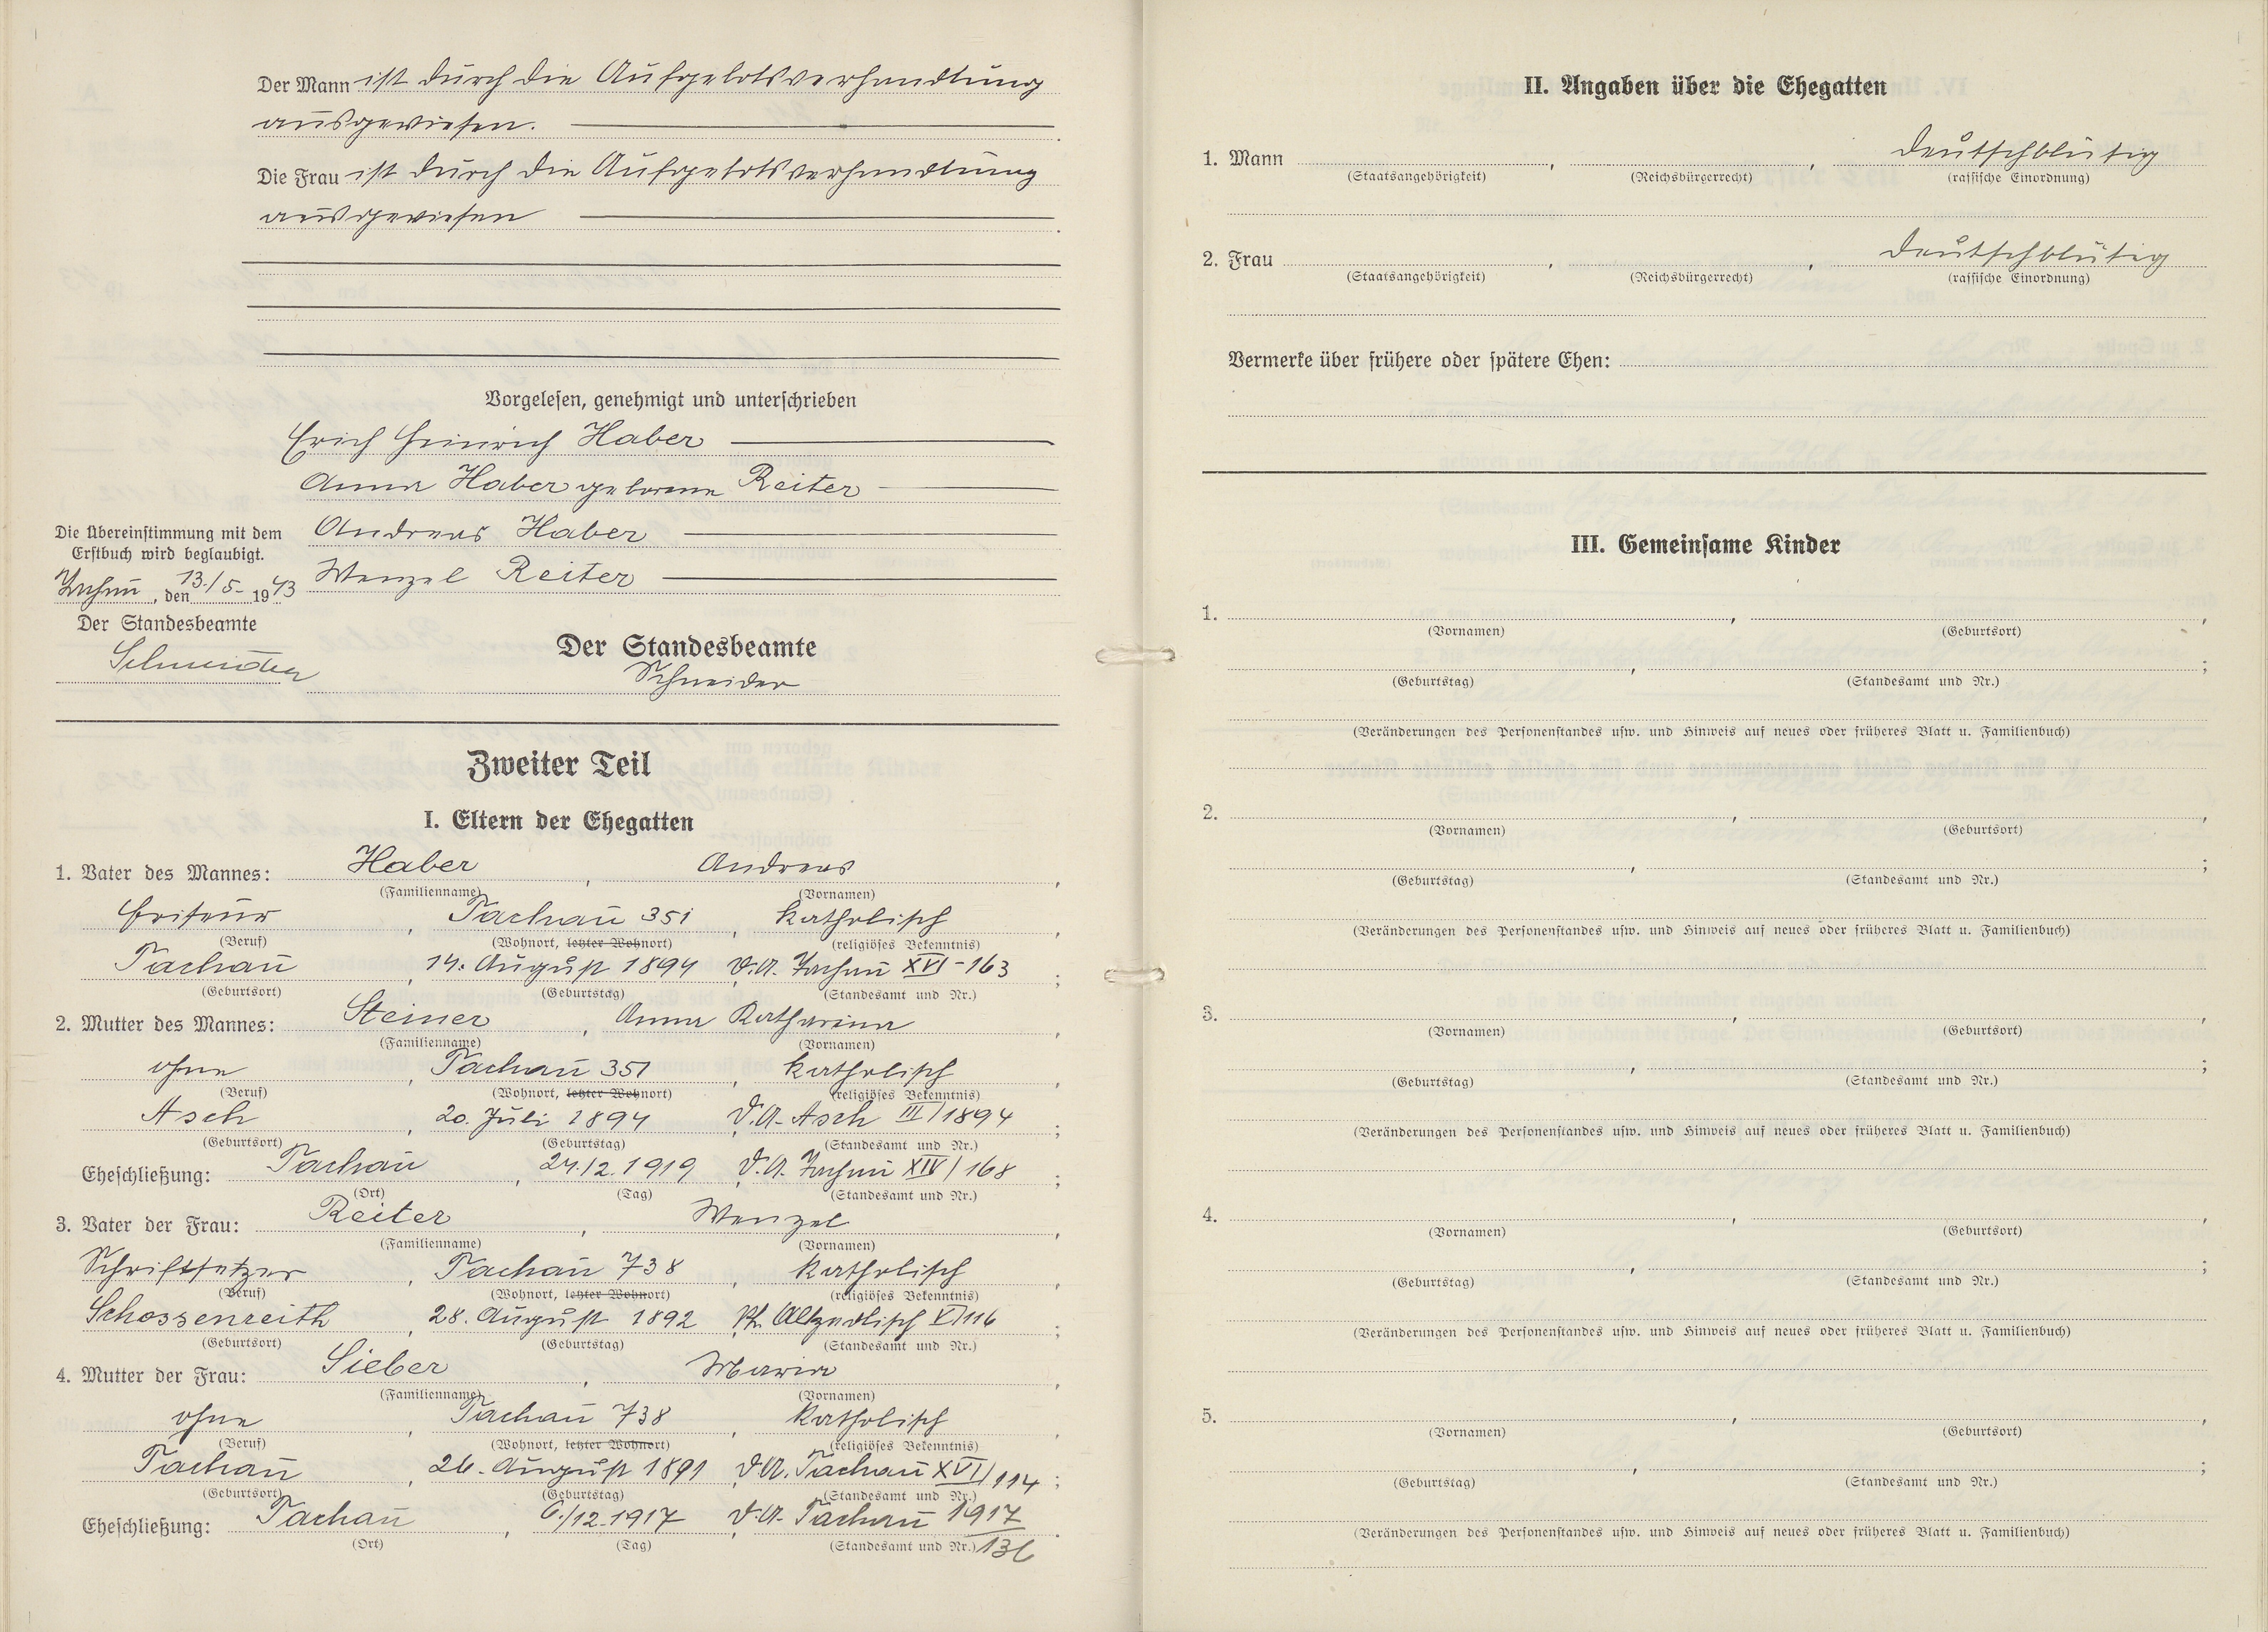 Der Mann ist durch die Aufgebotsverhandlung
ausgewiesen.
Die Frau ist durch die Aufgebotsverhandlung
ausgewiesen
Vorgelesen, genehmigt und unterschrieben
Erich Heinrich Haber
Anna Haber geborene Reiter
Andreas Haber
Wenzel Reiter
Die Übereinstimmung mit dem
Erstbuch wird beglaubigt.
Tachau, den 13./5. 1943
Der Standesbeamte
Schneider
Der Standesbeamte
Schneider
Zweiter Teil
I. Eltern der Ehegatten
1. Vater des Mannes: Haber, Andreas,
(Familienname) (Vornamen)
Friseur, Tachau 351, katholisch,
(Beruf) (Wohnort, letzter Wohnort) (religiöses Bekenntnis)
Tachau, 14. August 1894, D.A. Tachau XVI-163;
(Geburtsort) (Geburtstag) (Standesamt und Nr.)
2. Mutter des Mannes: Steiner, Anna Katharina,
(Familienname) (Vornamen)
ohne, Tachau 351, katholisch,
(Beruf) (Wohnort, letzter Wohnort) (religiöses Bekenntnis)
Asch, 20. Juli 1894, D.A. Asch III/1894;
(Geburtsort) (Geburtstag) (Standesamt und Nr.)
Eheschließung: Tachau, 24./2. 1919, D.A. Tachau XIV/168;
(Ort) (Tag) (Standesamt und Nr.)
3. Vater der Frau: Reiter, Wenzel,
(Familienname) (Vornamen)
Schriftsetzer, Tachau 738, katholisch,
(Beruf) (Wohnort, letzter Wohnort) (religiöses Bekenntnis)
Schossenreith, 28. August 1892, Pf. Altzedlisch V/116;
(Geburtsort) (Geburtstag) (Standesamt und Nr.)
4. Mutter der Frau: Sieber, Maria,
(Familienname) (Vornamen)
ohne, Tachau 738, katholisch,
(Beruf) (Wohnort, letzter Wohnort) (religiöses Bekenntnis)
Tachau, 26. August 1891, D.A. Tachau XVI/114;
(Geburtsort) (Geburtstag) (Standesamt und Nr.)
Eheschließung: Tachau, 6./12. 1917, D.A. Tachau 1917.
(Ort) (Tag) (Standesamt und Nr.) 136
II. Angaben über die Ehegatten
1. Mann , , deutschblütig
(Staatsangehörigkeit) (Reichsbürgerrecht) (rassische Einordnung)
2. Frau , , deutschblütig
(Staatsangehörigkeit) (Reichsbürgerrecht) (rassische Einordnung)
Vermerke über frühere oder spätere Ehen:
III. Gemeinsame Kinder
1. , ,
(Vornamen) (Geburtsort)
, ;
(Geburtstag) (Standesamt und Nr.)
(Veränderungen des Personenstandes usw. und Hinweis auf neues oder früheres Blatt u. Familienbuch)
2. , ,
(Vornamen) (Geburtsort)
, ;
(Geburtstag) (Standesamt und Nr.)
(Veränderungen des Personenstandes usw. und Hinweis auf neues oder früheres Blatt u. Familienbuch)
3. , ,
(Vornamen) (Geburtsort)
, ;
(Geburtstag) (Standesamt und Nr.)
(Veränderungen des Personenstandes usw. und Hinweis auf neues oder früheres Blatt u. Familienbuch)
4. , ,
(Vornamen) (Geburtsort)
, ;
(Geburtstag) (Standesamt und Nr.)
(Veränderungen des Personenstandes usw. und Hinweis auf neues oder früheres Blatt u. Familienbuch)
5. , ,
(Vornamen) (Geburtsort)
, ;
(Geburtstag) (Standesamt und Nr.)
(Veränderungen des Personenstandes usw. und Hinweis auf neues oder früheres Blatt u. Familienbuch)